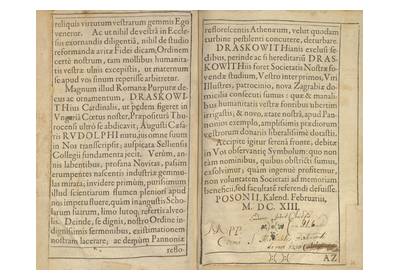 reliquis virtutum vestrarum gemmis Ego
veneror. Ac ut nihil de vestrâ in Ecclesiis
exornandis diligentiâ, nihil de studio
reformandæ avitæ Fidei dicam, Ordinem
certè nostrum, tam mollibus humanitatis
vestræ ulnis excepistis, ut maternum
se apud vos sinum reperisse arbitretur.
Magnum illud Romanæ Purpuræ decus
ac ornamentum, DRASKOWITHius
Cardinalis, ut pedem figeret in
Ungariâ Cœtus noster, Præposituram Thurocensi
ultrò se abdicavit, Augusti Cæsaris
RVDOLPHI nutu, jusque suum
in Nos transcripsit; auspicata Selliensis
Collegii fundamenta jecit. Verùm,
alienis labentibus, profana Novitas,
erumpentes nascentis industriæ gemmulas
mirata, invidere primùm, purissimum
illud scientiarum flumen pleniori apud
nos impetu fluere, quàm in angustis Scholarum
suarum, limo lutoq; refertis alveolis.
Deinde, se dignis, nostro Ordine indignissimis
sermonibus, existimationem
nostram lacerare, ac demum Pannoniæ
reflo-
reflorescentis Athenarum, velut quodam
turbine pestilenti concutere, deturbare.
DRASKOWITHianis exclusi sedibus,
perinde ac si hereditariâ DRASKOWITHiis
foret Societatis Nostræ fovendæ
studium, Vestro inter primos, Viri
Illustres, patrocinio, nova Zagrabiæ domicilia
consecuti sumus: quæ & manalibus
humanitatis vestræ fontibus ubertim
irrigastis, & novo, ætate nostrâ, apud Pannonios
exemplo, amplissimis prædiorum
vestrorum donariis liberalissimè dotastis.
Accipite igitur serenâ fronte, debitæ
in Vos observantiæ Symbolum: quo non
etiam nominibus, quibus obstricti sumus,
exsolvimur; quàm ingenuè profitemur,
non voluntatem Societati ad memoriam
beneficii, sed facultatē referendi defuisse.
POSONII, Kalend. Februarii,
M. DC. XIII.
A2